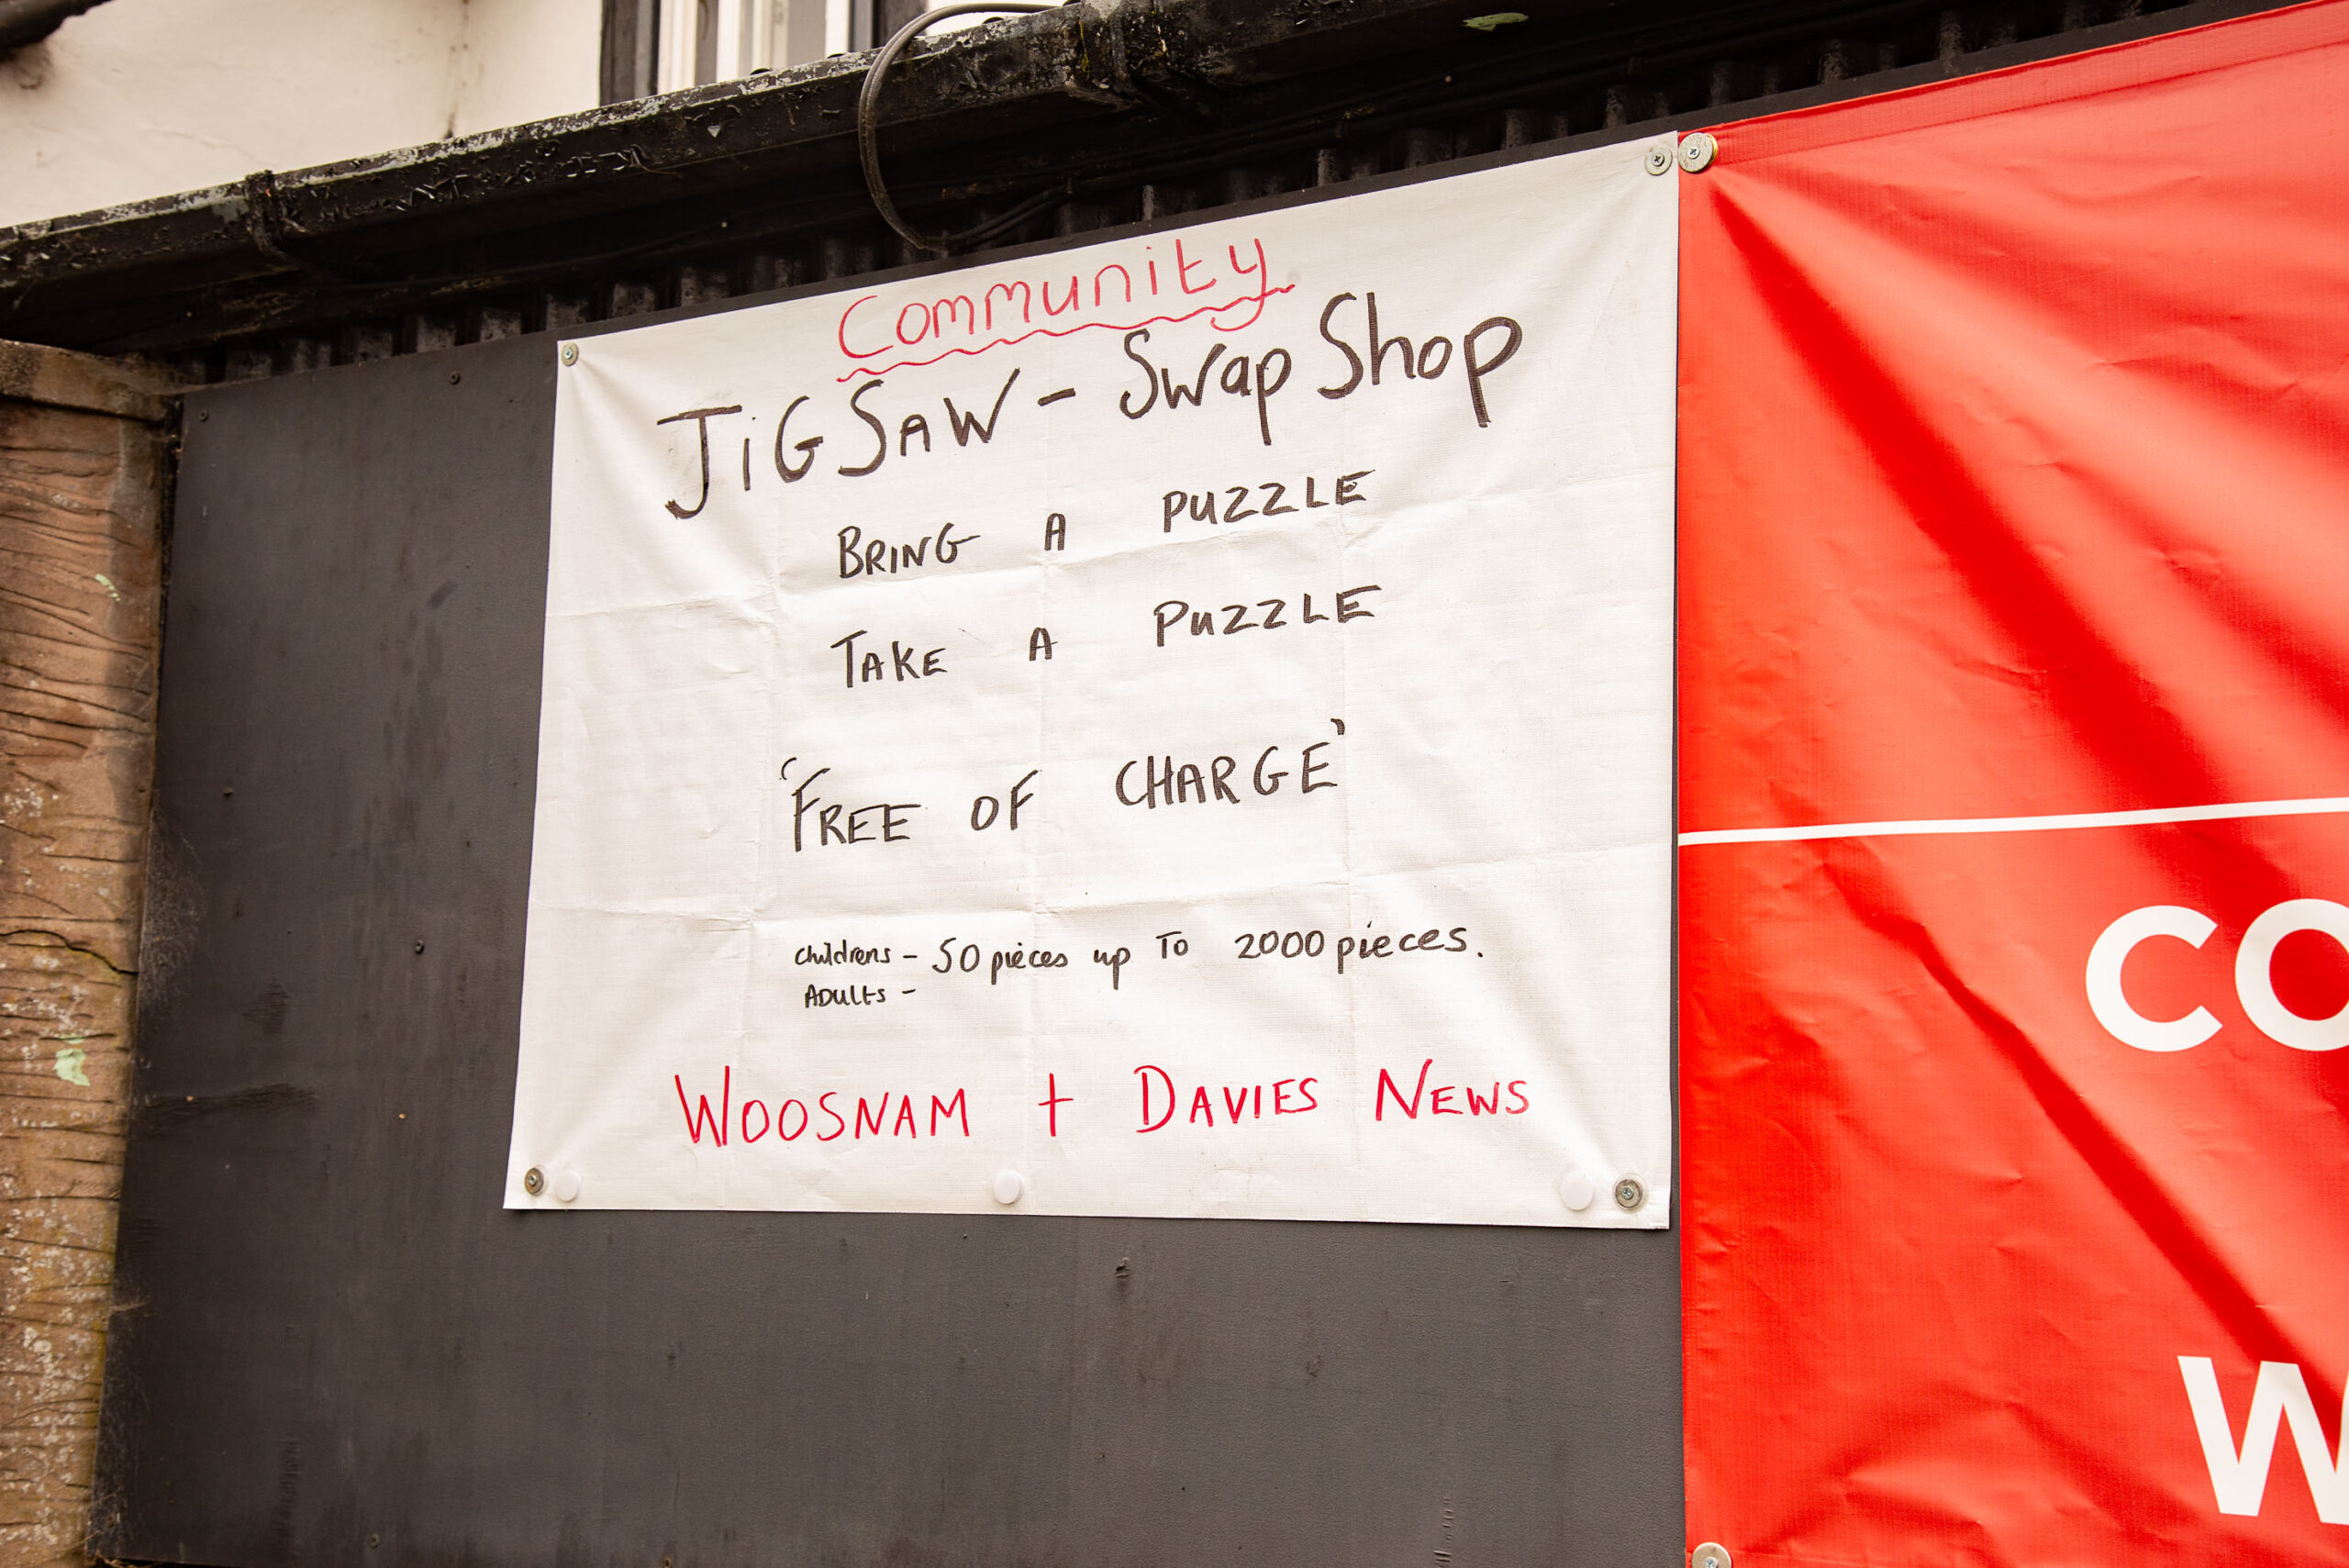 Community
JiGSAW - Swap Shop
BRING A PUZZLE
TAKE A PUZZLE
'FREE OF CHARGE'
Childrens - 50 pieces up To 2000 pieces.
ADULTS -
WOOSNAM + DAVIES NEWS
CO
W